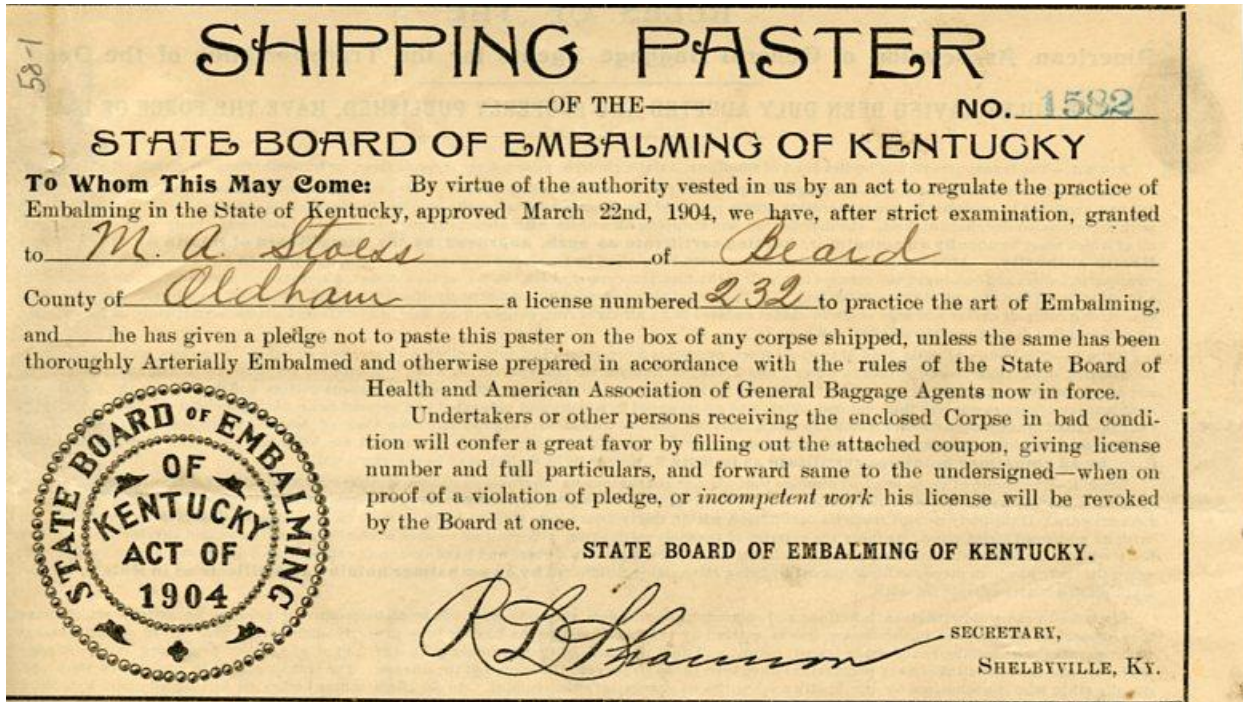 58-1
SHIPPING PASTER
OF THE
NO. 1582
STATE BOARD OF EMBALMING OF KENTUCKY
To Whom This May Come: By virtue of the authority vested in us by an act to regulate the practice of
Embalming in the State of Kentucky, approved March 22nd, 1904, we have, after strict examination, granted
to M. A. Stoess of Beard
County of Oldham a license numbered 232 to practice the art of Embalming,
and he has given a pledge not to paste this paster on the box of any corpse shipped, unless the same has been
thoroughly Arterially Embalmed and otherwise prepared in accordance with the rules of the State Board of
Health and American Association of General Baggage Agents now in force.
Undertakers or other persons receiving the enclosed Corpse in bad condi-
tion will confer a great favor by filling out the attached coupon, giving license
number and full particulars, and forward same to the undersigned—when on
proof of a violation of pledge, or incompetent work his license will be revoked
by the Board at once.
STATE BOARD OF EMBALMING OF KENTUCKY.
R L Shannon
SECRETARY,
SHELBYVILLE, KY.
STATE BOARD OF EMBALMING
OF
KENTUCKY
ACT OF
1904